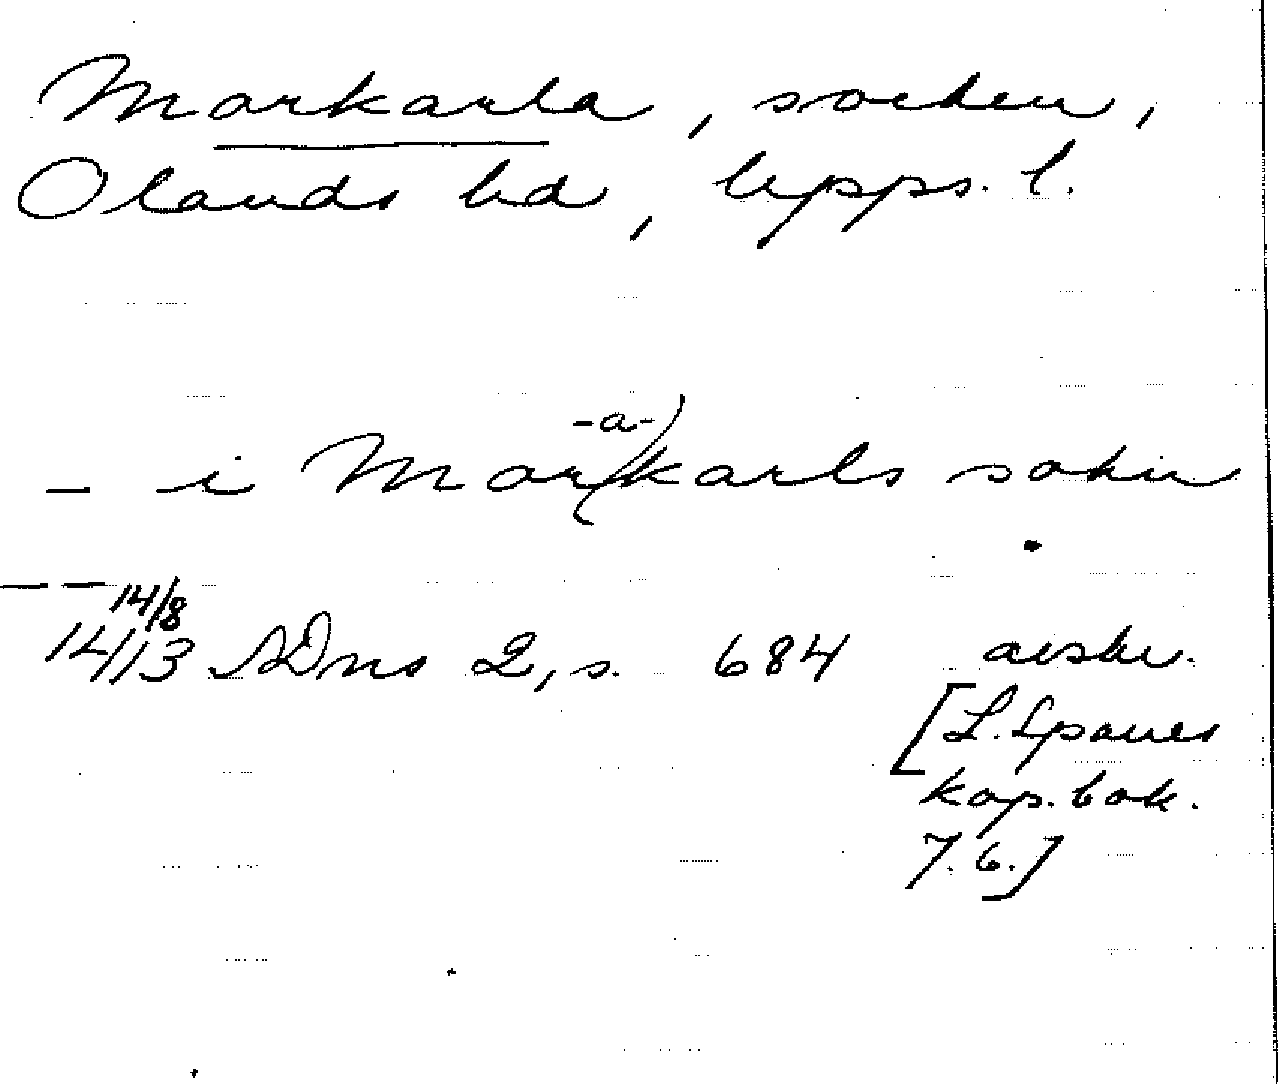 Markarla, socken,
Olands hd, Upps. l.
- i Mar(-a-)karls sokn
- -
14/8
1413 SDns 2, s. 684 avskr.
[L. Sparres
kop. bok.
7. 6.]